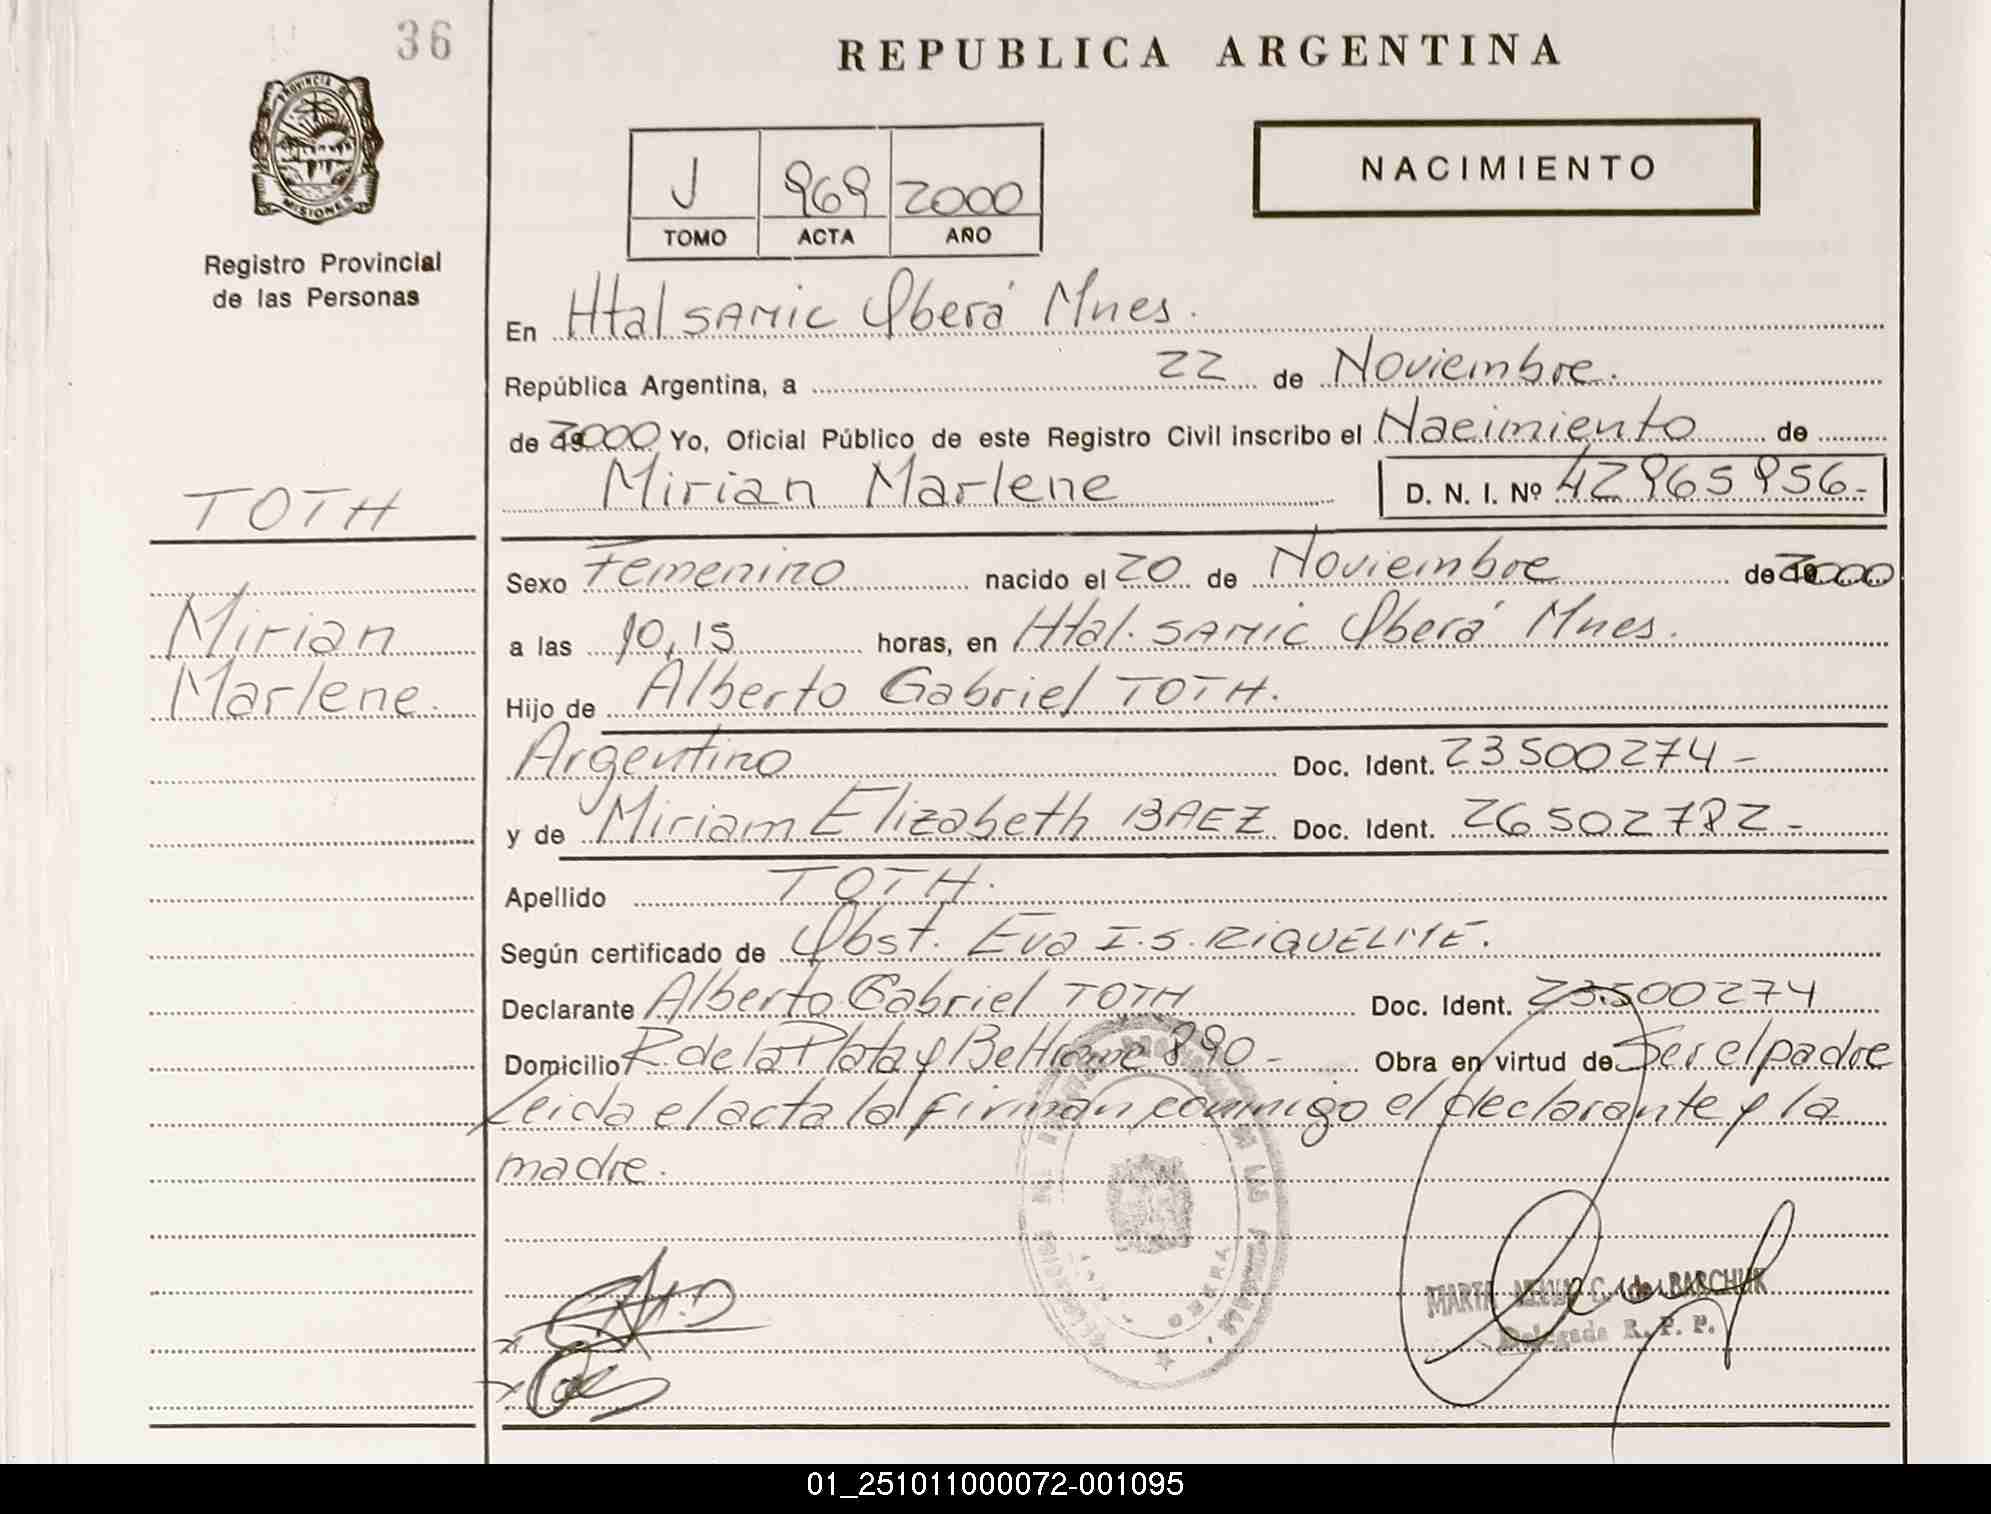 36
REPUBLICA ARGENTINA
PROVINCIA DE
MISIONES
Registro Provincial
de las Personas
J 969 2000
TOMO ACTA AÑO
NACIMIENTO
En Htal SAMIC Oberá Mnes.
República Argentina, a 22 de Noviembre.
de 2000 Yo, Oficial Público de este Registro Civil inscribo el Nacimiento de
Mirian Marlene D. N. I. Nº 42965956-
TOTH
Mirian
Marlene.
Sexo Femenino nacido el 20 de Noviembre de 2000
a las 10,15 horas, en Htal. SAMIC Oberá Mnes.
Hijo de Alberto Gabriel TOTH.
Argentino Doc. Ident. 23500274-
y de Miriam Elizabeth BAEZ Doc. Ident. 26502782-
Apellido TOTH.
Según certificado de Obst. Eva I.S. RIQUELME.
Declarante Alberto Gabriel TOTH Doc. Ident. 23.500274
Domicilio R. de la Plata y Beltrame 890- Obra en virtud de Ser el padre
Leida el acta la firman conmigo el declarante y la
madre.
MARTA C. de BARCHUK
Delegada R. P. P.
OBERA
01_251011000072-001095